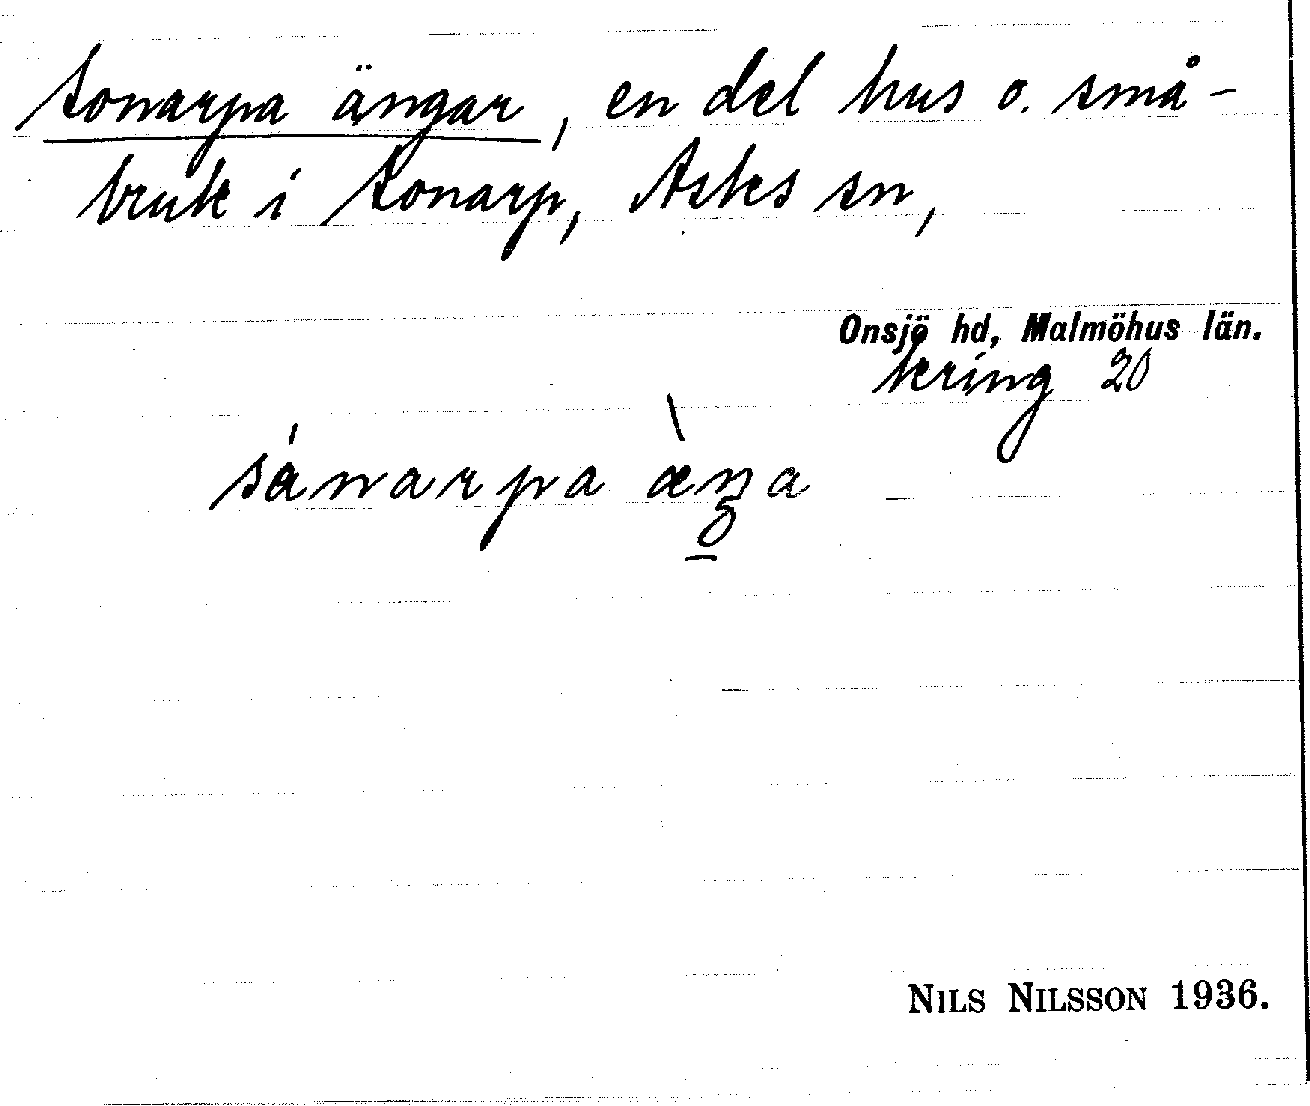 Sonarpa ängar, en del hus o. små-
bruk i Sonarp, Asks sn,
Onsjö hd, Malmöhus län.
kring 20
sánarpa æ̀ŋa
NILS NILSSON 1936.